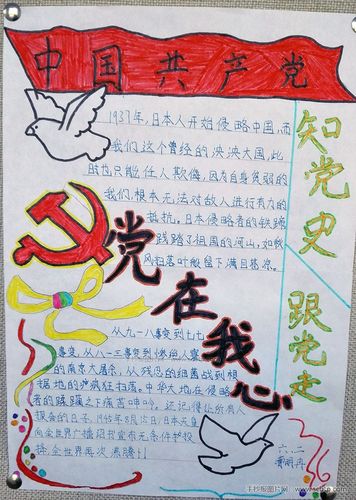 中国共产党
1937年,日本人开始侵略中国,而
我们这个曾经的泱泱大国,此
时也只能任人欺侮,因为自身贫弱的
我们根本无法对敌人进行有力的
抵抗。日本侵略者的铁蹄
践踏了祖国的河山,如秋
风扫落叶般留下满目苍凉。
知党史
跟党走
党在我心
从九一八事变到七七
事变,从八一三事变到惨绝人寰
的南京大屠杀,从残忍的细菌战到根
据地的疯狂扫荡。中华大地在侵略
者的蹂躏之下痛苦呻吟。还记得让所有人
振奋的日子,1945年8月15日,日本天皇
向全世界广播诏书宣布无条件投
降,全世界再次沸腾!
六.二